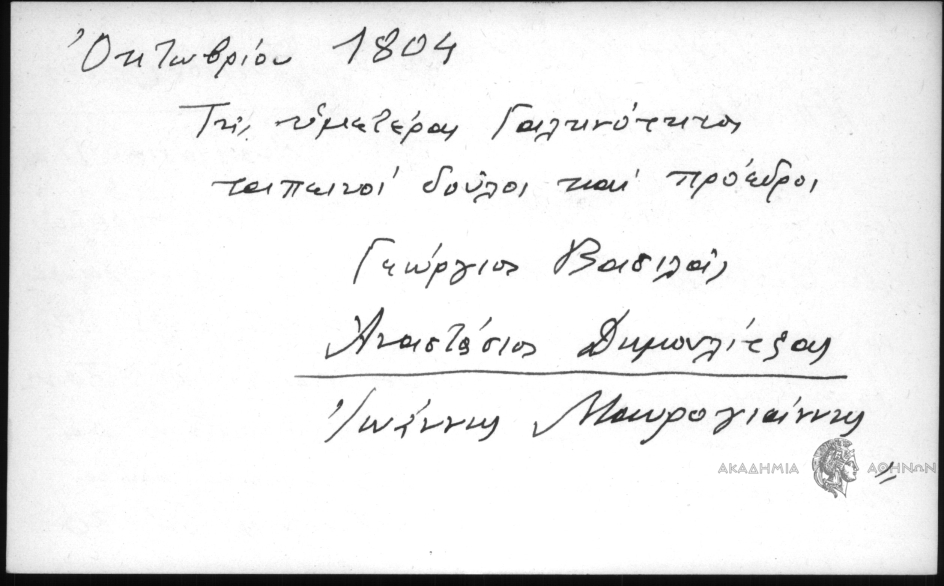 Ὀκτωβρίου 1804
Τῆς ὑμετέρας Γαληνότητος
ταπεινοί δοῦλοι καί πρόεδροι
Γεώργιος Βασιλᾶς
Ἀναστάσιος
Ἰωάννης Μαυρογιάννης
ΑΚΑΔΗΜΙΑ ΑΘΗΝΩΝ